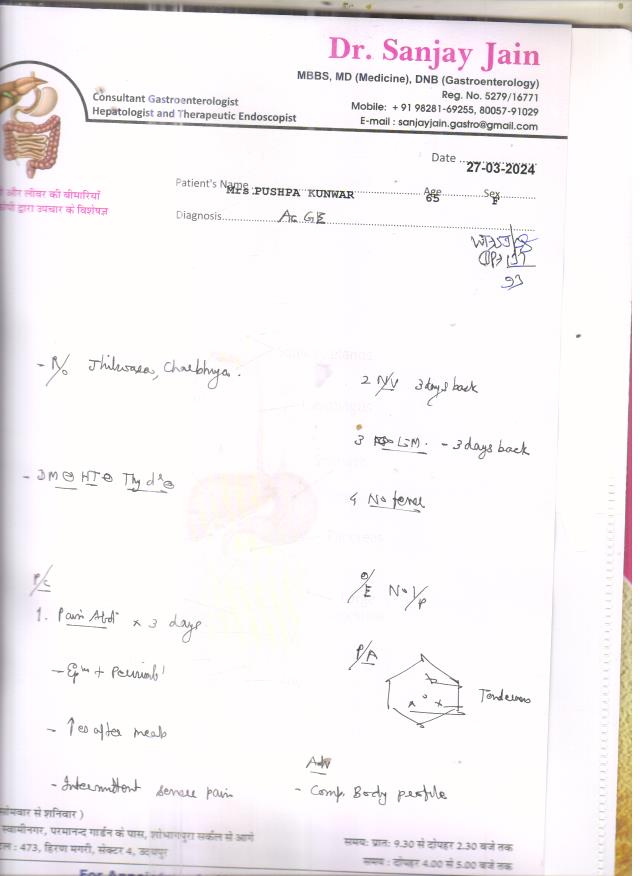 Dr. Sanjay Jain
MBBS, MD (Medicine), DNB (Gastroenterology)
Reg. No. 5279/16771
Mobile: +91 98281-69255, 80057-91029
E-mail : sanjayjain.gastro@gmail.com
Consultant Gastroenterologist
Hepatologist and Therapeutic Endoscopist
और लीवर की बीमारियों
द्वारा उपचार के विशेषज्ञ
Date 27-03-2024
Patient's Name Mrs.PUSHPA KUNWAR Age 65 Sex F
Diagnosis Ac GE
93
- R/o Jhilwara, Charbhuja.
2 N/V 3 days back
3 LM. - 3 days back
- DM⊖ HT⊖ Thy d's⊖
4 No fever
P/C
O/E No I/P
1. Pain Abd × 3 days
P/A
- Epm + Periumb
Tenderness
- ↑es after meals
Adv
- Intermittent severe pain
- Comp. Body profile
सोमवार से शनिवार )
स्वामीनगर, परमानन्द गार्डन के पास, शोभागपुरा सर्कल से आगे
: 473, हिरण मगरी, सेक्टर 4, उदयपुर
समय: प्रातः 9.30 से दोपहर 2.30 बजे तक
समय : दोपहर 4.00 से 5.00 बजे तक